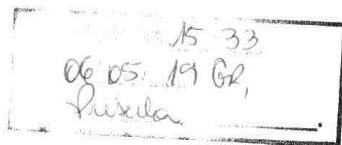 15 33
06 05 19 GR,
Priscila